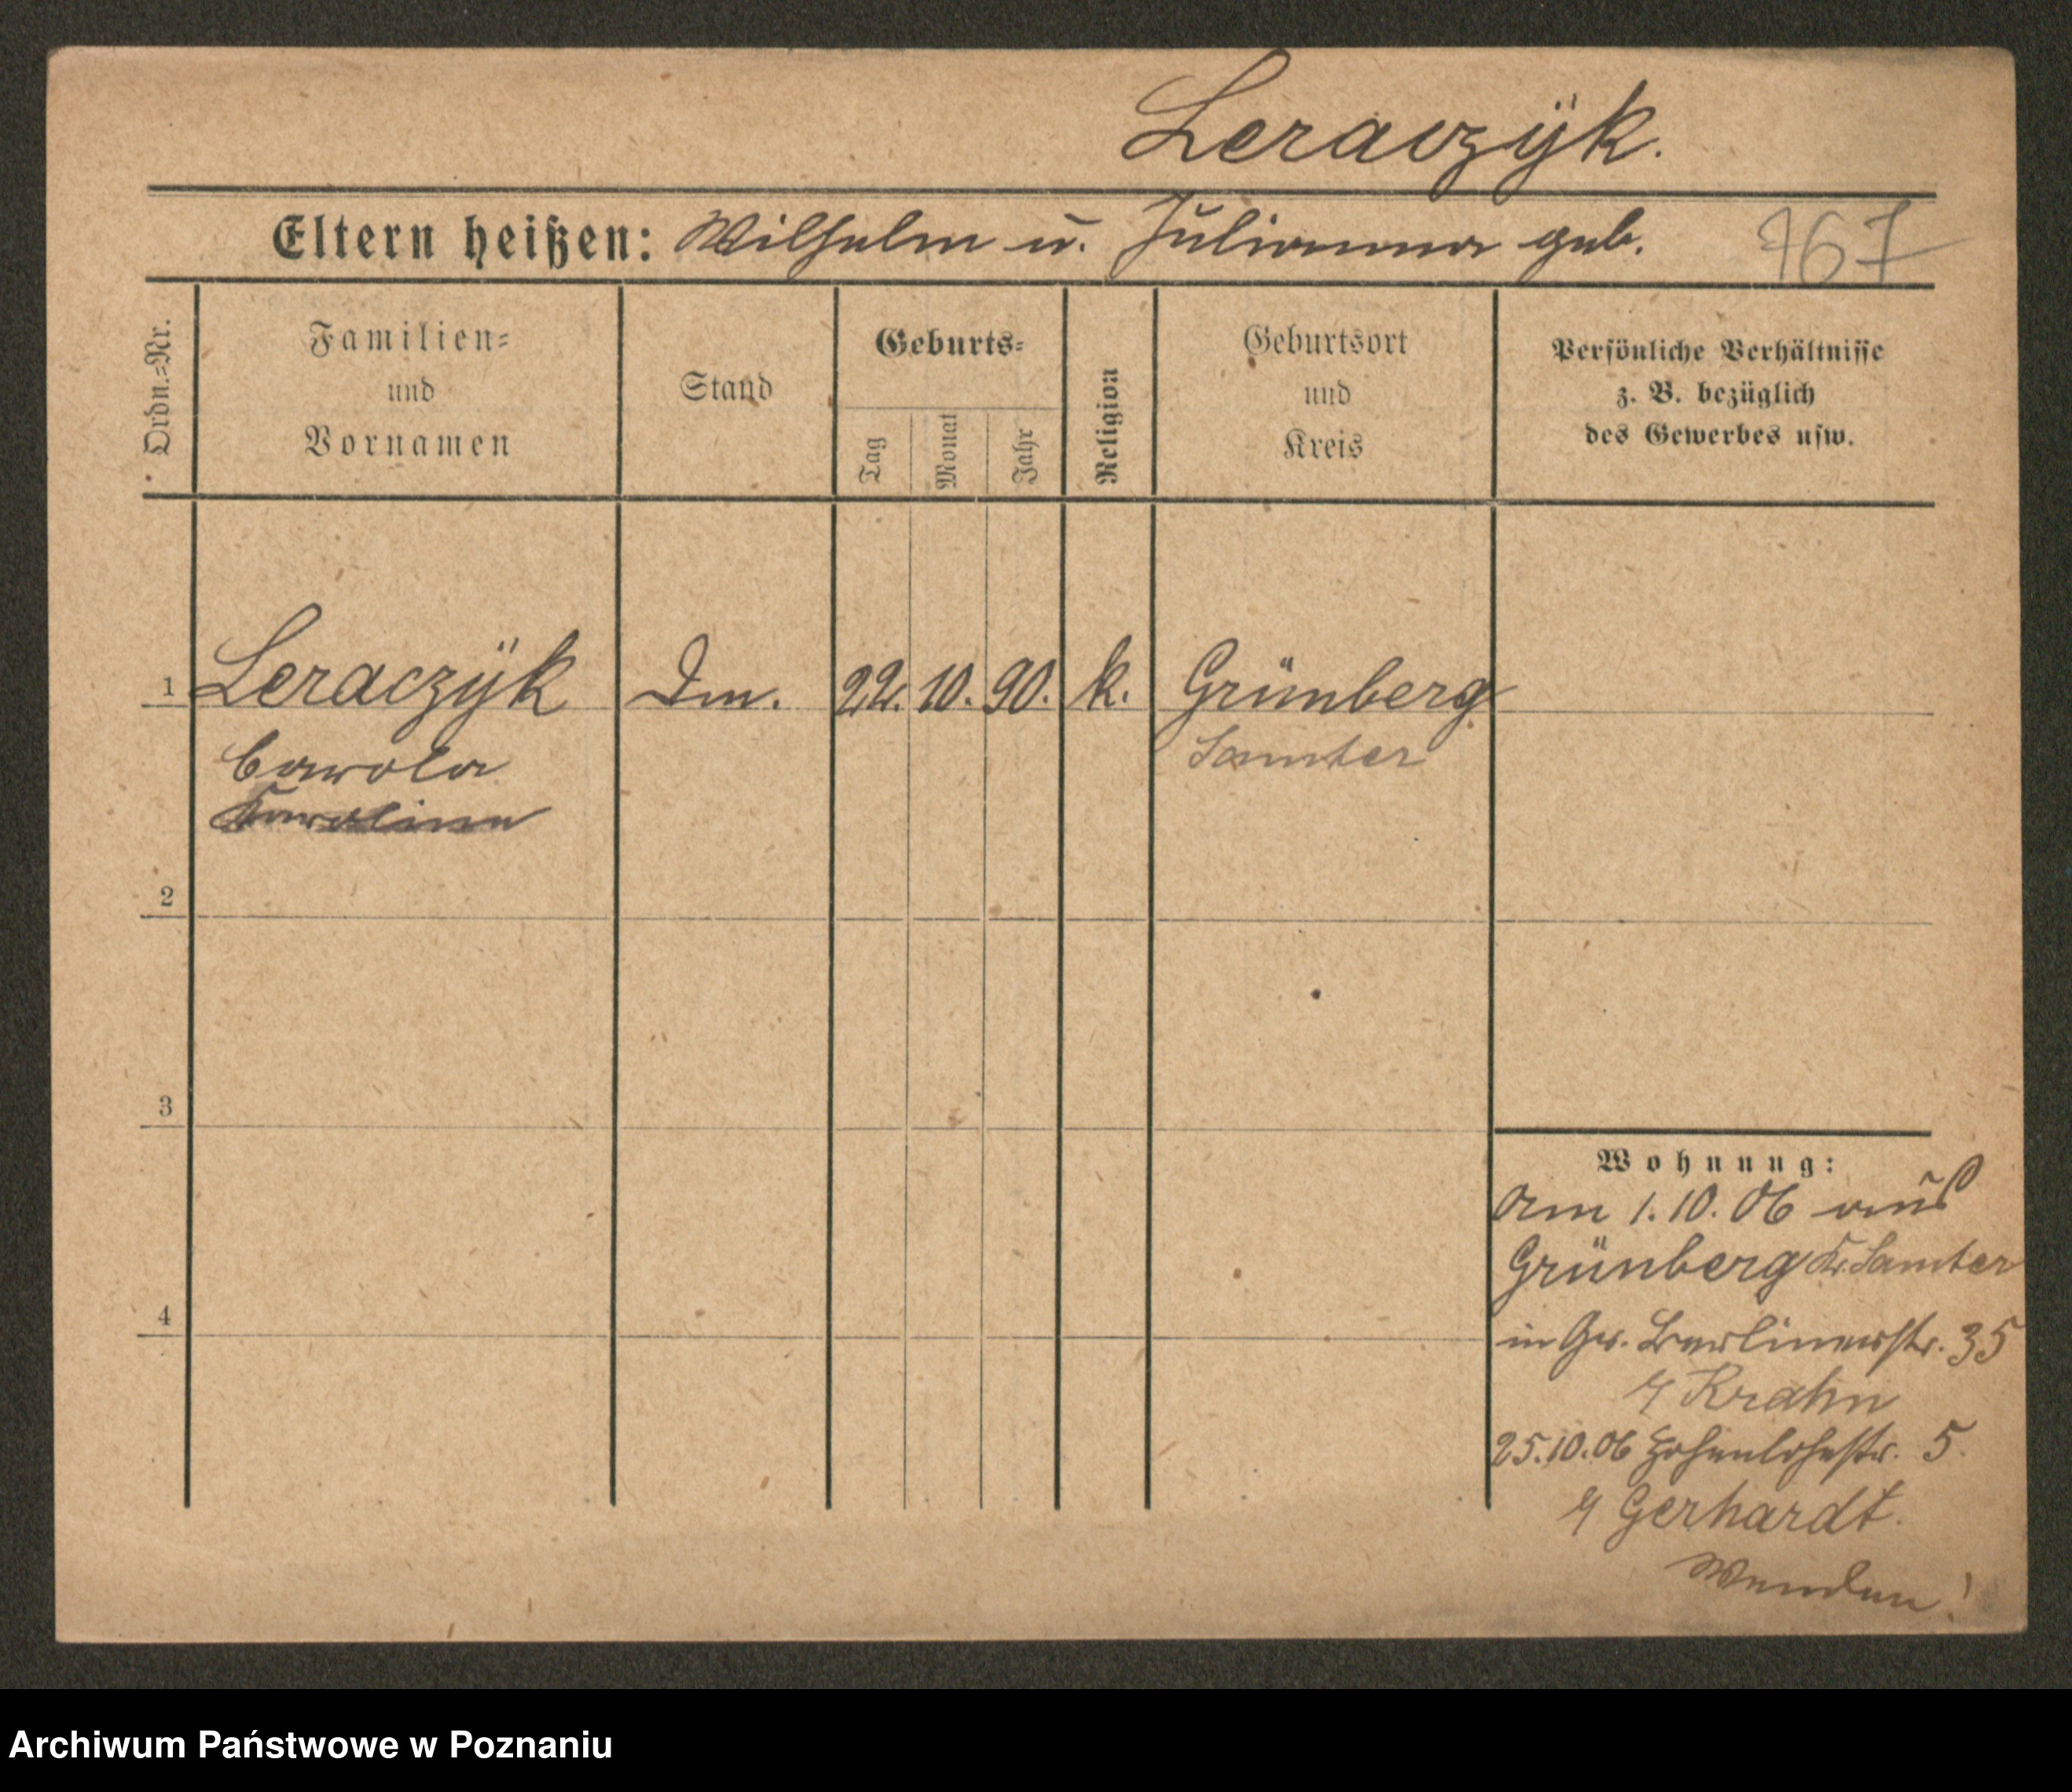 Leraczÿk.
Eltern heißen: Wilhelm u. Julianna geb. 767
Ordn.=Nr.
Familien=
und
Vornamen
Stand
Geburts=
Tag
Monat
Jahr
Religion
Geburtsort
und
Kreis
Persönliche Verhältnisse
z. B. bezüglich
des Gewerbes usw.
1 Leraczÿk Dm. 22. 10. 90. k. Grünberg
Carola Samter
Karoline
2
3
4
Wohnung:
Am 1.10.06 aus
Grünberg Kr. Samter
in Gr. Berlinerstr. 35
Krahn
25.10.06 Hohenlohestr. 5.
Gerhardt.
Wenden!
Archiwum Państwowe w Poznaniu